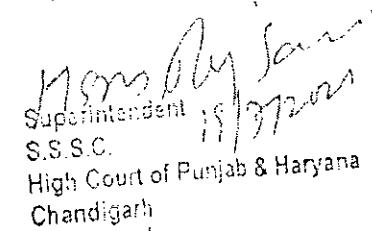 Superintendent
19/3/2021
S.S.S.C.
High Court of Punjab & Haryana
Chandigarh